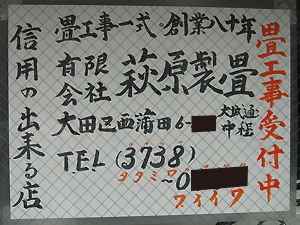 畳工事受付中
畳工事一式・創業八十年
有限会社 萩原製畳
大田区西蒲田6-
大城通中程
TEL (3738)
タタミワ
~0
ワイイワ
信用の出来る店